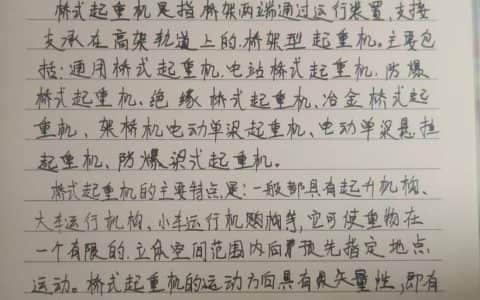 桥式起重机是指桥架两端通过运行装置,支接
支承在高架轨道上的桥架型起重机。主要包
括:通用桥式起重机、电站桥式起重机、防爆
桥式起重机、绝缘桥式起重机、冶金桥式起
重机、架桥机电动单梁起重机、电动单梁悬挂
起重机、防爆梁式起重机。
桥式起重机的主要特点是:一般都具有起升机构、
大车运行机构、小车运行机构等,它可使重物在
一个有限的立体空间范围内向预先指定地点
运动。桥式起重机的运动方向具有矢量性,即有